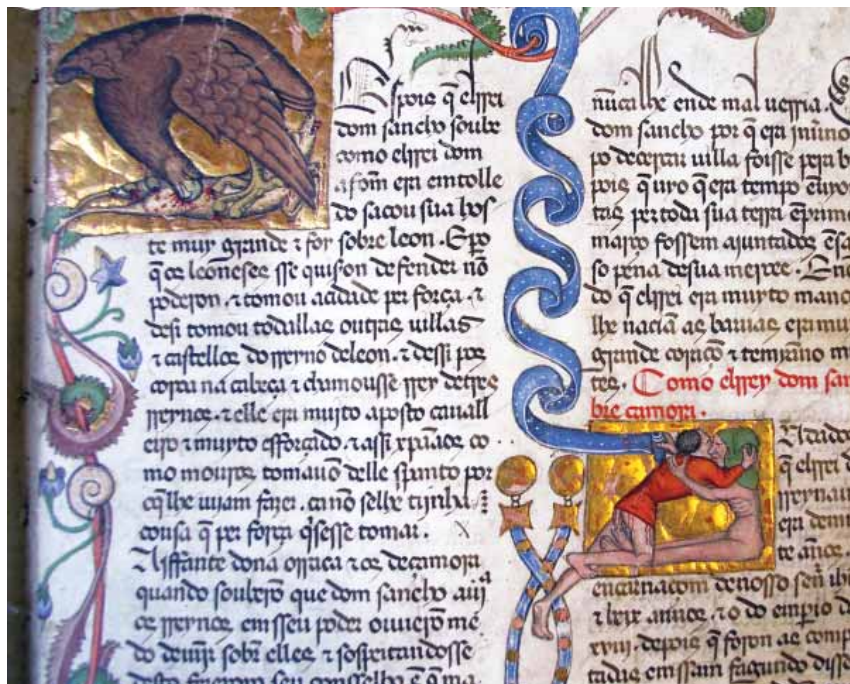 Espois q̄ elrrei
dom sancho soube
como elrrei dom
afom̄ era em tolle
do sacou sua hos
te muy grande ⁊ foy sobre leon. Epo
q̄ os leoneses sse quiseron defender nō
poderon. ⁊ tomou acidade per força. ⁊
desi tomou todallas outras uillas
⁊ castellos do rreyno deleon. ⁊ dessi pos
coroa na cabeça ⁊ chamousse rrey detres
rreynos. ⁊ elle era muito aposto cauall
eiro ⁊ muyto efforçado. ⁊ assi xpāaos co
mo mouros tomauō delle spanto por
oq̄ lhe uijam fazer. ca nō selhe tijnha
cousa q̄ per força q̄sesse tomar.
A iffante dona orraca ⁊ os decamora
quando souberō que dom sancho auia
os rreynos emsseu poder ouuerō me
do deuijr sobre elles ⁊ sospeitandosse
desto fezerom seu consselho
nūca lhe ende mal uerria.
dom sancho por q̄ era inuerno
po decercar uilla foisse pera b
pois q̄ uyo q̄ era tempo
tas per toda sua terra
março fossem aiuntados
so pena desua merçee.
do q̄ elrrei era muyto manc
lhe naciam as baruas era mu
grande coraçō ⁊ temiāno m
tes. Como elrrey dom san
bre camora.
Andados
q̄ elrrei d
rreynau
era
te anos.
encarnacom denosso sen̄
⁊ lxix annos. ⁊ o do emperio d
xviii. depois q̄ foron as comp
tadas em ssam fagundo disse